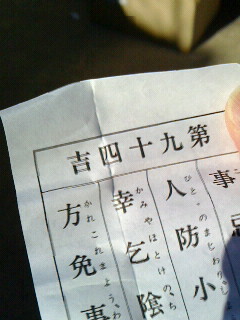 第九十四吉
事忌
人防小
ひと のまじわり
幸乞陰
かみやほとけのち
方免事
かれこれまようわ